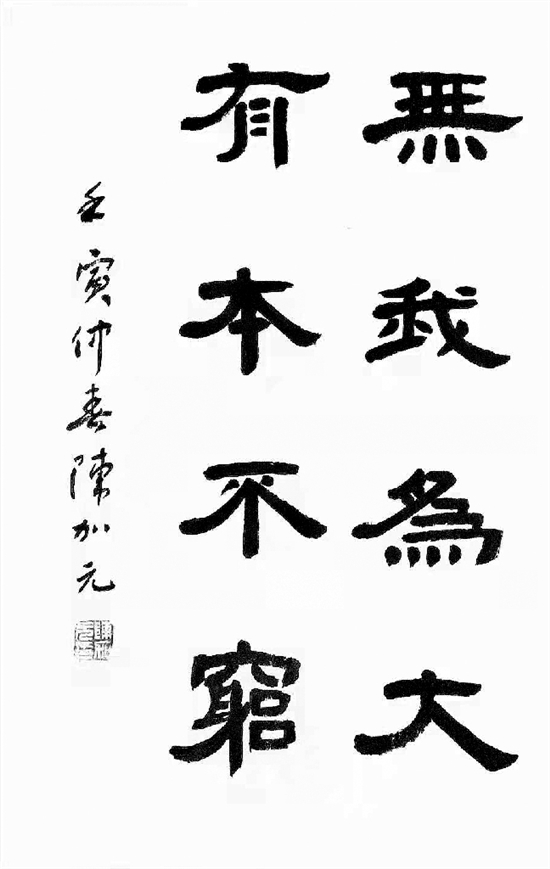 無我為大
有本不窮
壬寅仲春陳加元